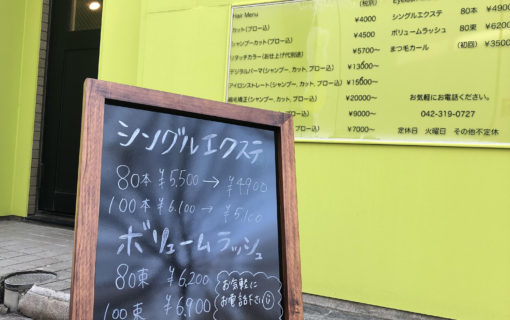 (税別)
Hair Menu
カット(ブロー込) ¥4000
シャンプーカット(ブロー込) ¥4500
リタッチカラー(お仕上げ代別途) ¥5700〜
デジタルパーマ(シャンプー、カット、ブロー込) ¥13000〜
アイロンストレート(シャンプー、カット、ブロー込) ¥15000〜
縮毛矯正(シャンプー、カット、ブロー込) ¥20000〜
ブロー込) ¥9000〜
ブロー込) ¥7000〜
シングルエクステ 80本 ¥4900
ボリュームラッシュ 80束 ¥6200
まつ毛カール (初回) ¥3500
お気軽にお電話ください。
042-319-0727
定休日 火曜日 その他不定休
シングルエクステ
80本 ¥5,500→¥4900
100本 ¥6,100→¥5,100
ボリュームラッシュ
80束 ¥6,200
100束 ¥6,900
お気軽に
お電話下さい